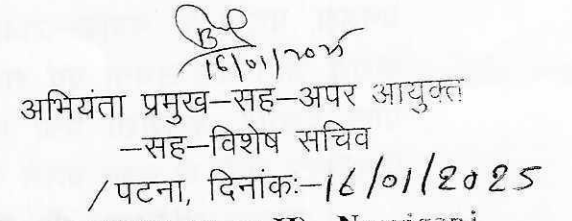 16/01/2025
अभियंता प्रमुख–सह–अपर आयुक्त
–सह–विशेष सचिव
/पटना, दिनांकः–16/01/2025